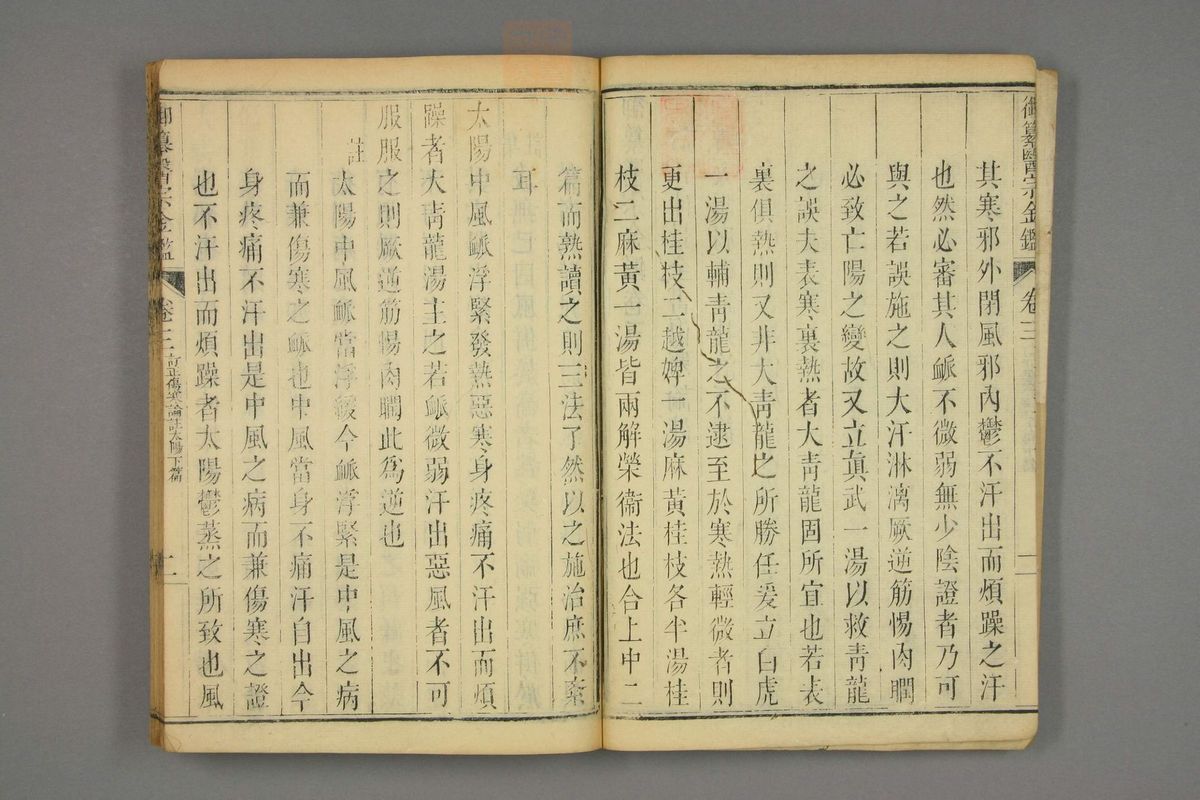 御纂醫宗金鑑 卷三 二
其寒邪外閉風邪內鬱不汗出而煩躁之汗
也然必審其人脈不微弱無少陰證者乃可
與之若誤施之則大汗淋漓厥逆筋惕肉瞤
必致亡陽之變故又立真武一湯以救青龍
之誤夫表寒裏熱者大青龍固所宜也若表
裏俱熱則又非大青龍之所勝任爰立白虎
一湯以輔青龍之不逮至於寒熱輕微者則
更出桂枝二越婢一湯麻黃桂枝各半湯桂
枝二麻黃一湯皆兩解榮衞法也合上中二
篇而熟讀之則三法了然以之施治庶不紊
太陽中風脈浮緊發熱惡寒身疼痛不汗出而煩
躁者大青龍湯主之若脈微弱汗出惡風者不可
服服之則厥逆筋惕肉瞤此為逆也
註
太陽中風脈當浮緩今脈浮緊是中風之病
而兼傷寒之脈也中風當身不痛汗自出今
身疼痛不汗出是中風之病而兼傷寒之證
也不汗出而煩躁者太陽鬱蒸之所致也風
御纂醫宗金鑑 卷三 訂正傷寒論註太陽下篇 二